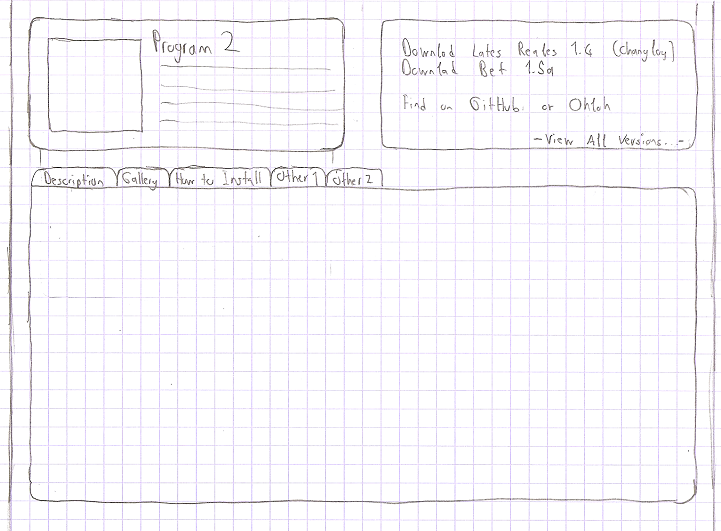 Program 2
Downlod Lates Reales 1.4 (changlog)
Downlad Bet 1.5a
Find on GitHub or Ohloh
-View All Versions...-
Description Gallery How to Install Other 1 Other 2